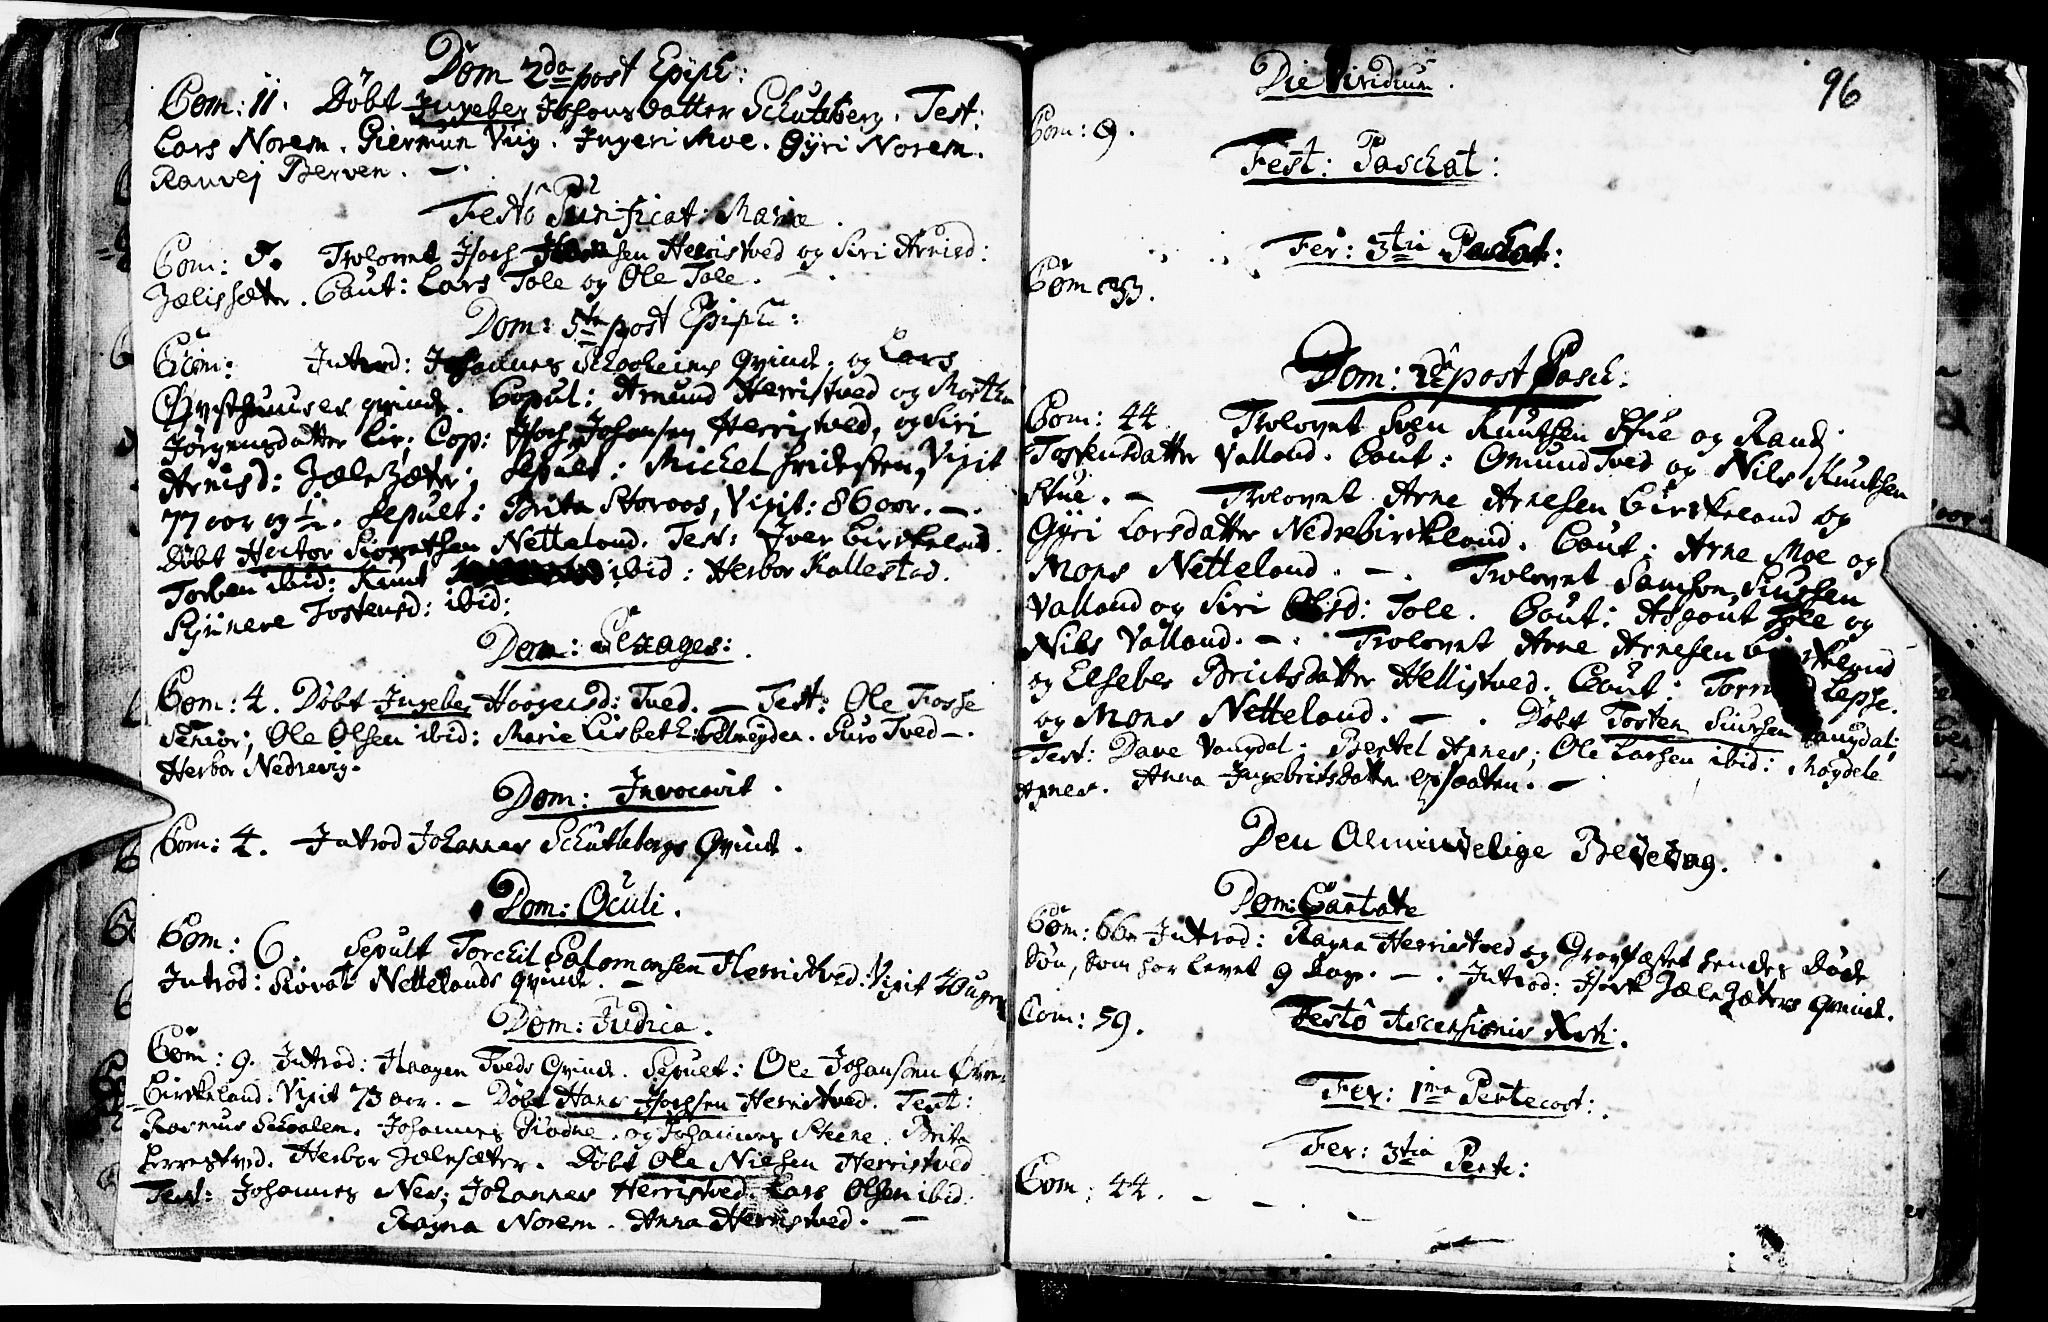 Dom 2da post Epiph:
Com: 11. Döbt Ingeber Johansdatter Schutleberg. Test:
Lars Norem. Giermun Viig. Ingeri Moe. Gyri Norem.
Ranvej Berven. —.
Festo Purificat: Mariæ.
Com: 5. Trolovet Hoch sen Herristved og Siri Arnisd:
Jælissæter. Caut: Lars Tole og Ole Tole.
Dom: 5ta post Epiph:
Com: Introd: Johannes Schooheims Qvinde. og Lars
Øvsthuuses qvinde. Copul: Amund Herristved og Martha
Jørgensdatter Lir; Cop: Hoch Johansen Herristved, og Siri
Arnisd: Jælesæter; Sepult: Michel, Vixit
77 aar og ½. Sepult: Brita Storoos, Vixit: 86 aar. —.
Döbt Hector Siovatsen Netteland. Test: Iver Birkeland.
Torben ibid: Knut ibid: Herbor Kallestad.
Tostensd: ibid:
Dom: Sexages:
Com: 4. Döbt Ingeber Haagensd: Tved. — Test: Ole Tosse
Senior; Ole Olsen ibid: Marie Lisbeth. Guro Tved —.
Herbor Nedrevig.
Dom: Invocavit.
Com: 4. Introd Johannes Schutlebergs Qvinde.
Dom: Oculi.
Com: 6. Sepult Torchil Salomonsen Herristved. Vixit 40 uger
Introd: Siovat Nettelands qvinde. —
Dom: Judica.
Com: 9. Introd: Haagen Tveds Qvinde. Sepult: Ole Johansen Øvre-
Birkeland. Vixit 73 aar. — Döbt Hans Hochsen Herristved. Test:
Rasmus Schaalen. Johannes Giödne. og Johannes Steene. Brita
Herristved. Herbor Jælesæter. Döbt Ole Nielsen Herristved
Test: Johannes Nes; Johannes Herristved. Lars Olsen ibid:
Ragna Norem. Anna Herristved. —
96
Die Viridium.
Com: 9.
Fest: Paschat:
Fer: 3tia Paschat:
Com 33.
Dom: 2da post Pasch:
Com: 44. Trolovet Sven Knutsen Stue og Randi
Tostensdatter Valland. Caut: Omund Tved og Nils Knutsen
Stue. — Trolovet Arne Arnesen Birkeland og
Gyri Larsdatter Nedrebirkeland. Caut: Arne Moe og
Mons Netteland. —. Trolovet Samson Siursen
Valland og Siri Olsd: Tole. Caut: Asgout Tole og
Nils Valland. —. Trolovet Arne Arnesen Birkeland
og Elseber Britsdatter Hellistved. Caut: Lepse.
og Mons Netteland. —. Döbt Tosten Siursen Vangdal;
Test: Dave Vangdal. Bertel Apnes; Ole Larsen ibid: Magdele
Apnes. Anna Ingebritsdatter. —
Den Almindelige Bededag.
Dom: Cantate
Com: 66. Introd: Ragna Herristved og Gravfæstet hendes döde
Sön, som har levet 9 dage. —. Introd: Jælesæters Qvinde.
Festo Ascensionis Xsti:
Com: 59.
Fer: 1ma Pentecost:
Fer: 3tia Pente:
Com: 44. — — —